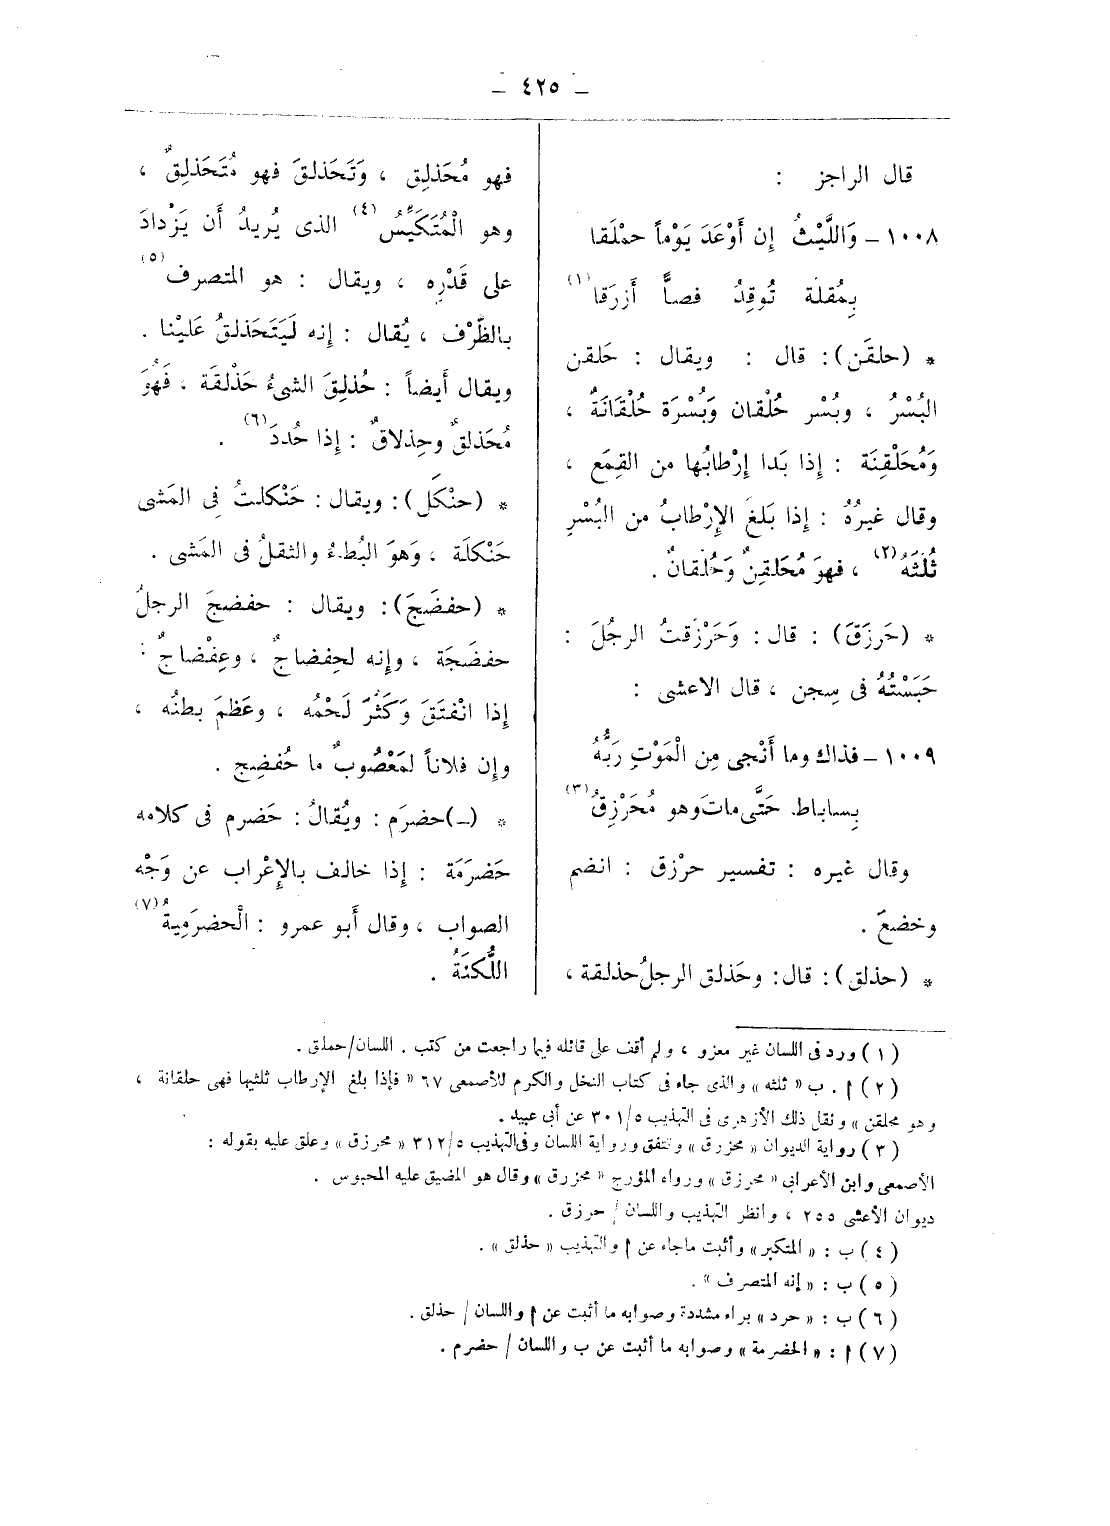 — ٤٢٥ —
قال الراجز :
١٠٠٨ – وَاللَّيْثُ إِن أَوْعَدَ يَوْماً حمْلَقا
بِمُقلَة تُوقِدُ فصاًّ أَزرَقا (١)
* (حلقَن) : قال : ويقال : حَلقن
البُسْرُ ، وبُسْر حُلْقان وَبُسْرَة حُلْقَانَةٌ ،
وَمُحَلْقِنَة : إذا بَدا إرْطابُها من القِمَع ،
وقال غيرُهُ : إذا بَلغَ الإرْطابُ من البُسْرِ
ثُلثَهُ (٢) ، فهوَ مُحَلقنٌ وَحُلْقانٌ .
* (حَرزَقَ) : قال : وَحَرْزَقتُ الرجُلَ :
حَبَسْتُهُ فى سِجن ، قال الاعشى :
١٠٠٩ – فذاك وما أَنْجى مِن الْمَوْتِ رَبَّهُ
بِساباط. حَتَّى مات وهو مُحَرْزِقُ (٣)
وقال غيره : تفسير حرْزق : انضم
وخضعَ .
* (حذلق) : قال : وحَذلق الرجلُ حذلقة ،
فهو مُحَذلِق ، وَتَحَذلقَ فهو مُتَحَذلِقٌ ،
وهو الْمُتَكَيِّسُ (٤) الذى يُريدُ أَن يَزْدادَ
على قَدْرِه ، ويقال : هو المتصرف (٥)
بالظَّرْف ، يُقال : إنه لَيَتَحَذلقُ عَلَيْنا .
ويقال أيضاً : حُذلِقَ الشىءُ حَذْلقَة ، فَهُوَ
مُحَذلقٌ وحِذلاقٌ : إذا حُددَ (٦) .
* (حنْكَل) : ويقال : حَنْكلتُ فى المَشى
حَنْكلَة ، وَهوَ البُطءُ والثقلُ فى المَشى .
* (حفضَجَ) : ويقال : حفضجَ الرجلُ
حفضَجَة ، وإنه لحِفضاجٌ ، وعِفْضاجٌ :
إذا انْفتَقَ وَكَثُرَ لَحْمُه ، وعَظمَ بطنُه ،
وإن فلاناً لمَعْصُوبٌ ما حُفضِج .
* (ـ) حضرَم : ويُقالُ : حَضرم فى كلامه
حَضرَمَة : إذا خالف بالإعْراب عن وَجْه
الصواب ، وقال أَبو عمرو : الْحضرَمِيةُ (٧)
اللُّكنَةُ .
(١) ورد فى اللسان غير معزو ، ولم أقف على قائله فيما راجعت من كتب . اللسان/حملق .
(٢) ا . ب « ثلثه » والذى جاء فى كتاب النخل والكرم للأصمعى ٦٧ « فإذا بلغ الإرطاب ثلثيها فهى حلقانة ،
وهو محلقن » ونقل ذلك الأزهرى فى التهذيب ٥/ ٣٠١ عن أبى عبيد .
(٣) رواية الديوان « محزرق » وتتفق ورواية اللسان وفى التهذيب ٥/ ٣١٢ « محرزق » وعلق عليه بقوله :
الأصمعى وابن الأعرابي « محرزق » ورواه المؤرج « محزرق » وقال هو المضيق عليه المحبوس .
ديوان الأعشى ٢٥٥ ، وانظر التهذيب واللسان / حرزق .
(٤) ب : « المتكبر » وأثبت ماجاء عن ا والتهذيب « حذلق » .
(٥) ب : « إنه المتصرف » .
(٦) ب : « حرد » براء مشددة وصوابه ما أثبت عن ا واللسان / حذلق .
(٧) ا : « الحضرمة » وصوابه ما أثبت عن ب واللسان / حضرم .